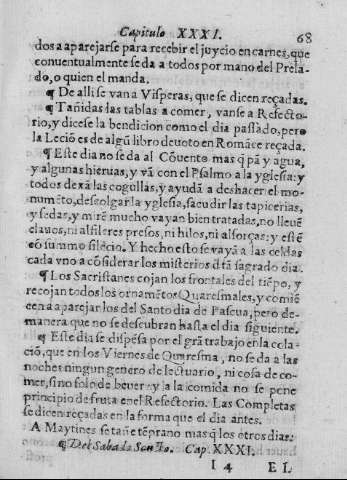 Capitulo XXXI. 68
dos a aparejarse para recebir el juycio en carnes, que
conuentualmente se da a todos por mano del Prela-
do, o quien el manda.
¶ De alli se van a Visperas, que se dicen reçadas.
¶ Tañidas las tablas a comer, vanse a Refecto-
rio, y dicese la bendicion como el dia passado, pero
la Leciõ es de algũ libro deuoto en Romãce reçada.
¶ Este dia no se da al Cõuento mas q̃ pã y agua,
y algunas hieruas, y vã con el Psalmo a la yglesia: y
todos dexã las cogullas, y ayudã a deshacer el mo-
numẽto, descolgar la yglesia, sacudir las tapicerias,
y sedas, y mirẽ mucho vayan bien tratadas, no lleuẽ
clauos, ni alfileres presos, ni hilos, ni alforças: y estẽ
cõ summo silẽcio. Y hecho esto se vayã a las celdas
cada vno a cõsiderar los misterios d̃ tã sagrado dia.
¶ Los Sacristanes cojan los frontales del tiẽpo, y
recojan todos los ornamẽtos Quaresmales, y comiẽ
cen a aparejar los del Santo dia de Pascua, pero de-
manera que no se descubran hasta el dia siguiente.
¶ Este dia se dispẽsa por el grã trabajo en la cola-
ciõ, que en los Viernes de Quaresma, no se da a las
noches ningun genero de lectuario, ni cosa de co-
mer, sino solo de beuer: y a la comida no se pone
principio de fruta en el Refectorio. Las Completas
se dicen reçadas en la forma que el dia antes.
A Maytines se tañe tẽprano mas q̃ los otros dias.
¶ Del Sabado Santo. Cap. XXXI.
I 4 EL